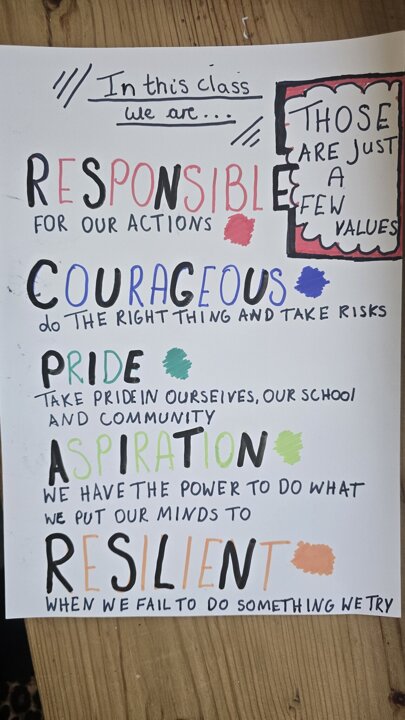 In this class
we are...
THOSE
ARE JUST
A
FEW
VALUES
RESPONSIBLE
FOR OUR ACTIONS
COURAGEOUS
do THE RIGHT THING AND TAKE RISKS
PRIDE
TAKE PRIDE IN OURSELVES, OUR SCHOOL
AND COMMUNITY
ASPIRATION
WE HAVE THE POWER TO DO WHAT
WE PUT OUR MINDS TO
RESILIENT
WHEN WE FAIL TO DO SOMETHING WE TRY